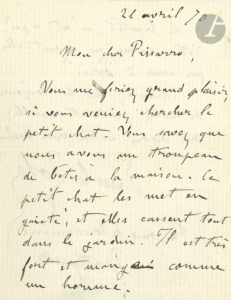 21 avril 70
Mon cher Pissarro,
Vous me feriez grand plaisir,
si vous veniez chercher le
petit chat. Vous savez que
nous avons un troupeau
de bêtes à la maison. Ce
petit chat les met en
gaieté, et elles cassent tout
dans le jardin. Il est très
fort et mange comme
un homme.